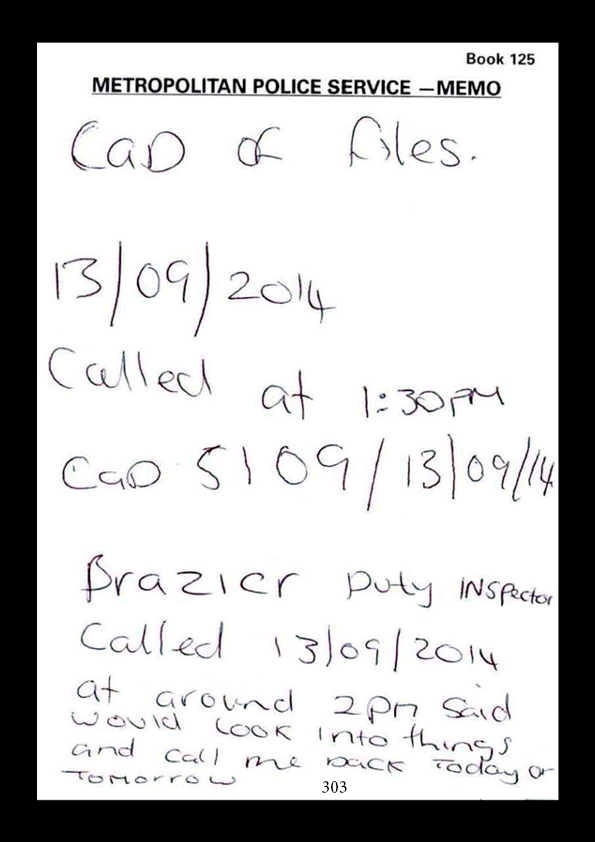 Book 125
METROPOLITAN POLICE SERVICE —MEMO
CaD of files.
13/09/2014
Called at 1:30PM
CaD 5109/13/09/14
Brazier Duty INSpector
Called 13/09/2014
at around 2pm Said
would look into things
and call me back Today or
Tomorrow
303